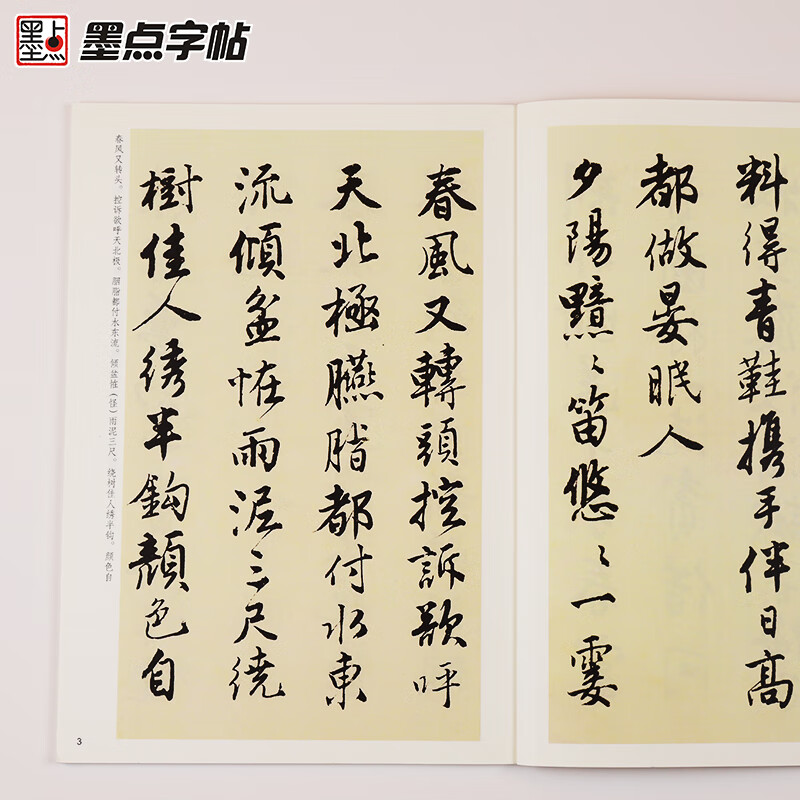 墨点
墨点字帖
料得青鞋携手伴日高
都做晏眠人
夕陽黯々笛悠々一霎
春風又轉頭控訴欲呼
天北極臙脂都付水東
流傾盆恠雨泥三尺繞
樹佳人綉半鈎顏色自
春风又转头。控诉欲呼天北极。胭脂都付水东流。倾盆恠（怪）雨泥三尺。绕树佳人绣半钩。颜色自
3